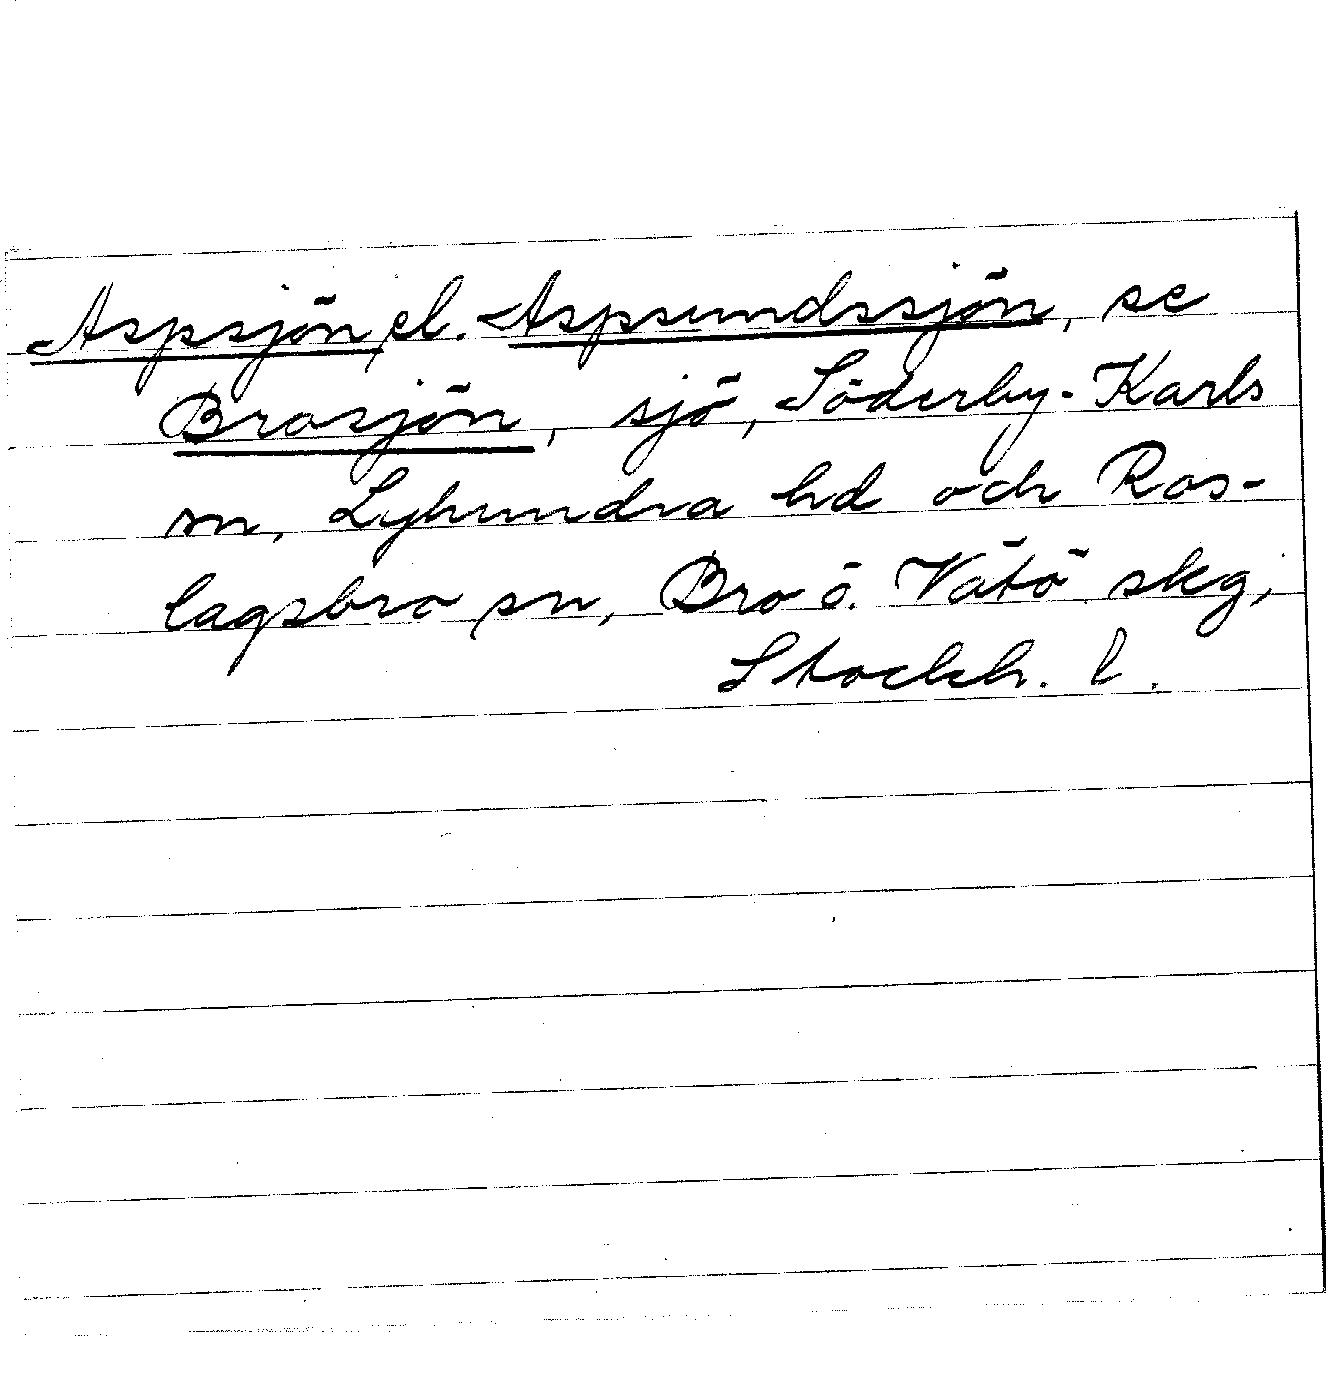 Aspsjön el. Aspsundssjön, se
Brosjön, sjö, Söderby-Karls
sn, Lyhundra hd och Ros-
lagsbro sn, Bro o. Vätö skg,
Stockh. l.